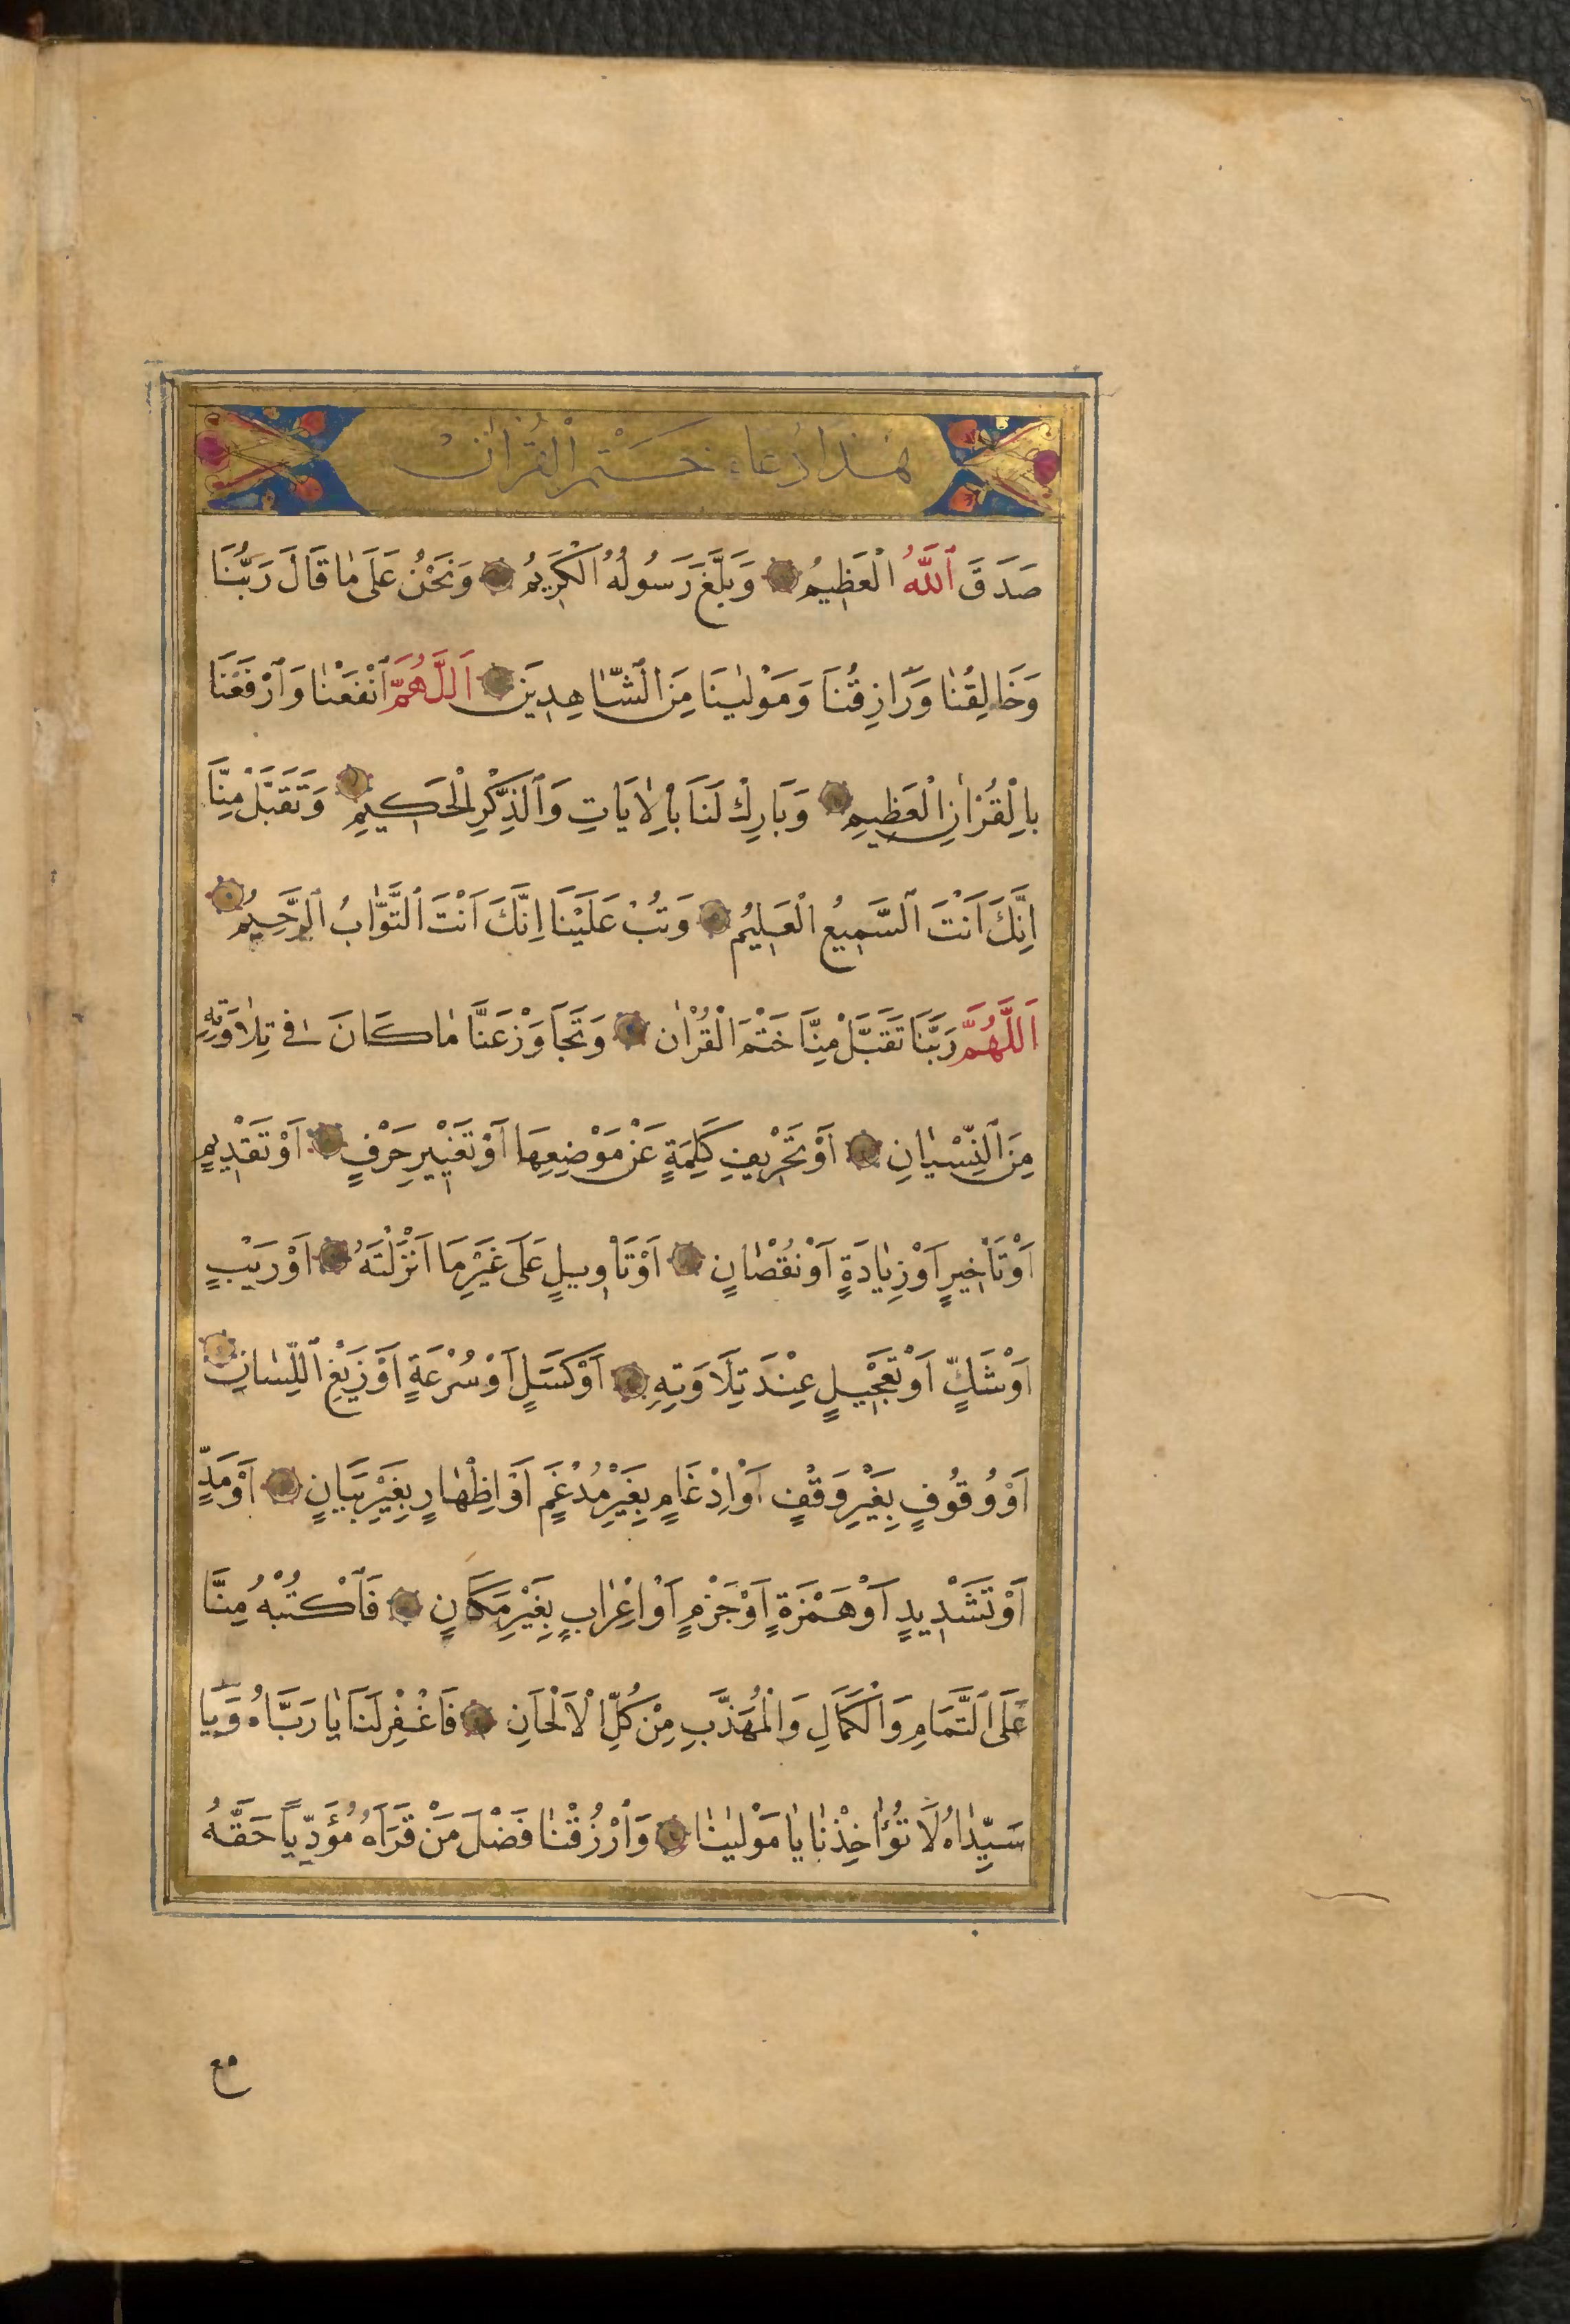 هٰذَا دُعَاء خَتْمِ الْقُرْاٰنْ
صَدَقَ اللّٰهُ الْعَظِيمُ وَبَلَّغَ رَسُولُهُ الْكَرِيمُ وَنَحْنُ عَلَى مٰا قَالَ رَبُّنَا
وَخَالِقُنٰا وَرَازِقُنَا وَمَوْلٰينَا مِنَ الشّٰاهِدِينَ اَللّٰهُمَّ انْفَعْنٰا وَارْفَعْنَا
بِالْقُرْاٰنِ الْعَظِيمِ وَبَارِكْ لَنَا بِالْاٰيَاتِ وَالذِّكْرِ الْحَكِيمِ وَتَقَبَّلْ مِنَّا
اِنَّكَ اَنْتَ السَّمِيعُ الْعَلِيمُ وَتُبْ عَلَيْنَا اِنَّكَ اَنْتَ التَّوَّابُ الرَّحِيمُ
اَللّٰهُمَّ رَبَّنَا تَقَبَّلْ مِنَّا خَتْمَ الْقُرْاٰن وَتَجَاوَزْ عَنَّا مٰا كَانَ فِى تِلٰاوَتِهِ
مِنَ النِّسْيٰانِ اَوْ تَحْرِيفِ كَلِمَةٍ عَنْ مَوْضِعِهَا اَوْ تَغْيِيرِ حَرْفٍ اَوْ تَقْدِيمٍ
اَوْ تَأْخِيرٍ اَوْ زِيٰادَةٍ اَوْ نُقْصٰانٍ اَوْ تَاْوِيلٍ عَلَى غَيْرِ مَا اَنْزَلْتَهُ اَوْ رَيْبٍ
اَوْ شَكٍّ اَوْ تَعْجِيلٍ عِنْدَ تِلَاوَتِهِ اَوْ كَسَلٍ اَوْ سُرْعَةٍ اَوْ زَيْغِ اللِّسٰانِ
اَوْ وُقُوفٍ بِغَيْرِ وَقْفٍ اَوْ اِدْغَامٍ بِغَيْرِ مُدْغَمٍ اَوْ اِظْهٰارٍ بِغَيْرِ بَيَانٍ اَوْ مَدٍّ
اَوْ تَشْدِيدٍ اَوْ هَمْزَةٍ اَوْ جَزْمٍ اَوْ اِعْرٰابٍ بِغَيْرِ مَكَانٍ فَاكْتُبْهُ مِنَّا
عَلَى التَّمَامِ وَالْكَمَالِ وَالْمُهَذَّبِ مِنْ كُلِّ الْاَلْحَانِ فَاغْفِرْ لَنَا يٰا رَبَّاهُ وَيَا
سَيِّدٰاهُ لَا تُؤٰاخِذْنٰا يٰا مَوْلٰينٰا وَارْزُقْنٰا فَضْلَ مَنْ قَرَاَهُ مُؤَدِّياً حَقَّهُ
مع